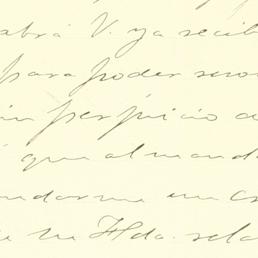 abrá V. ya recib
para poder
in perjuicio d
que al manda
mandarme un c
de su Hda. rela